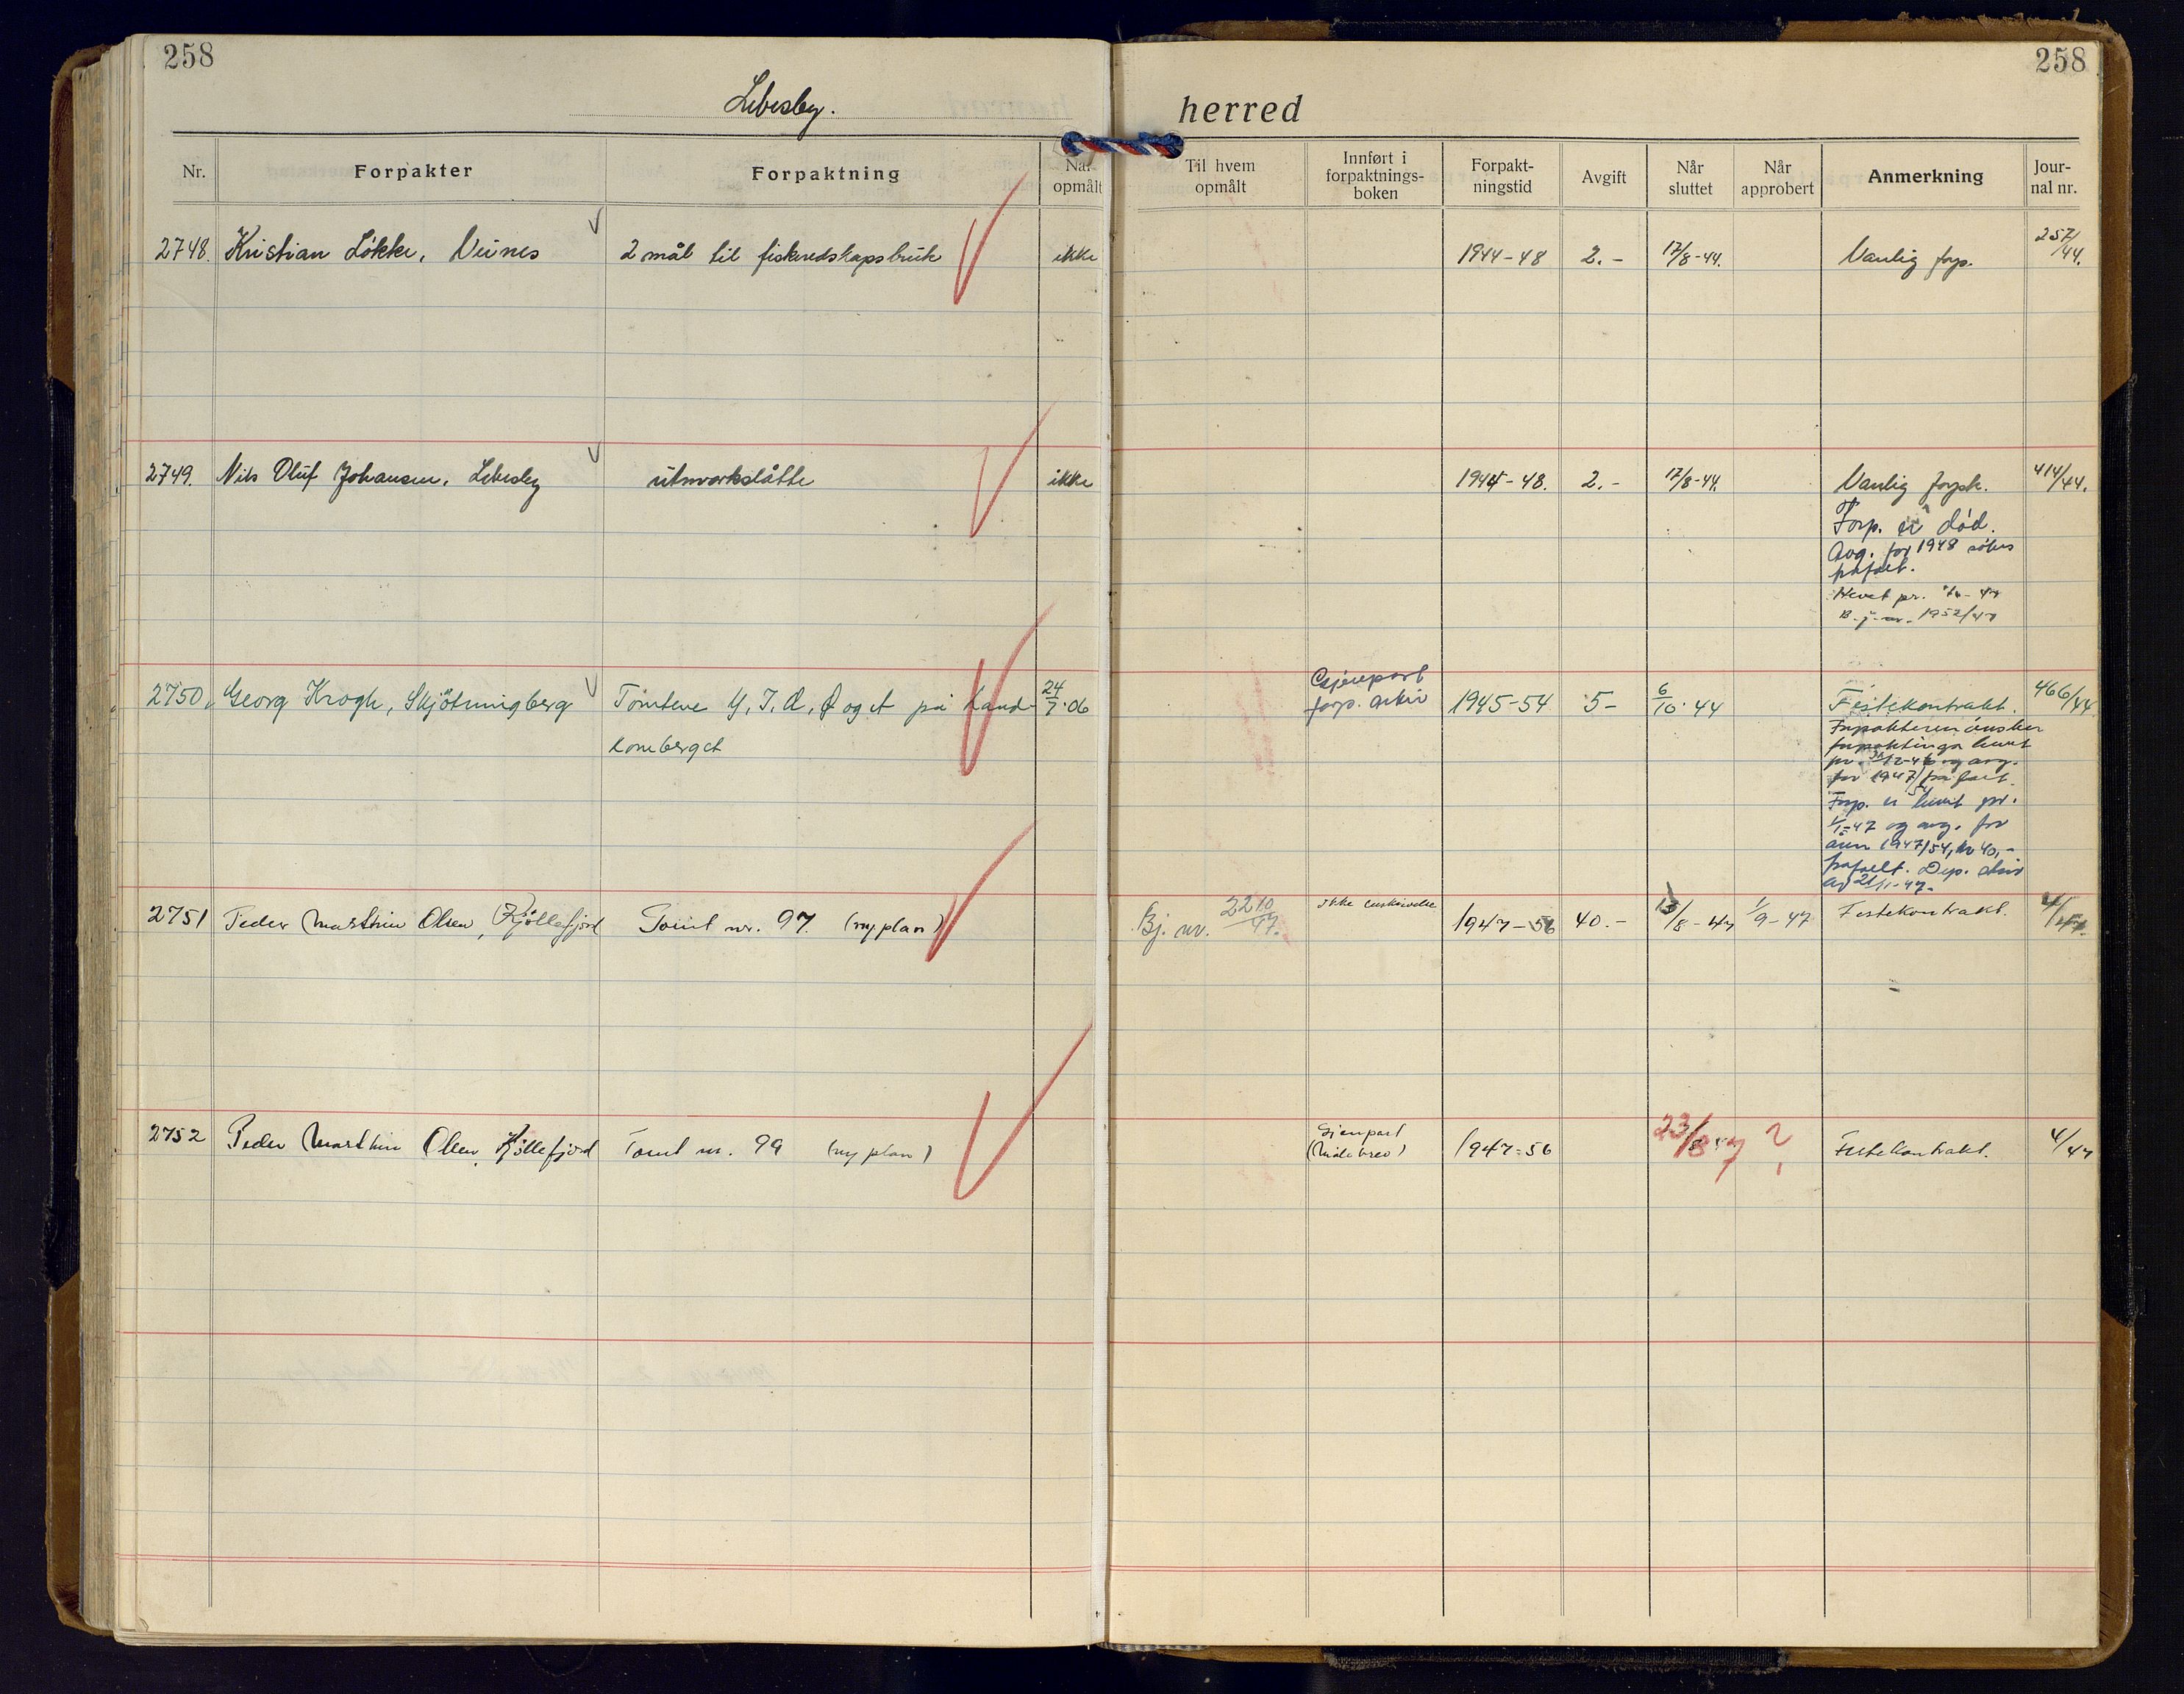 258
258
Lebesby.
herred
Nr.
Forpakter
Forpaktning
Når
opmålt
Til hvem
opmålt
Innført i
forpaktnings-
boken
Forpakt-
ningstid
Avgift
Når
sluttet
Når
approbert
Anmerkning
Jour-
nal nr.
2748. Kristian Løkke, Veines 2 mål til fiskeredskapsbruk ikke 1944-48 2.- 17/8-44. Vanlig forp. 257/44.
2749. Nils Oluf Johansen, Lebesby utmarkslåtte ikke 1944-48. 2.- 17/8-44. Vanlig forpk. 414/44.
Forp. er død.
Avg. for 1948 søkes
påfaelt.
Hevet pr.
B.j.nr. 1952/47
2750, Georg Krogh, Skjøtningberg Tomtene Y, I, Æ, Ø og A på Land- 24/7.06 Gjenpart 1945-54 5- 6/10.44 Festekontrakt. 466/44
koneberget
forp. arkiv
Forpakteren ønsker
forpaktinga hevet
pr. 31/12-46 og avg.
for 1947/54 påfaelt.
Forp. er hevet pr.
1/1-47 og avg. for
åren 1947/54, kr 40,-
påfaelt. Dep. skriv
av 21/11-47.
2751 Peder Marthin Olsen, Kjøllefjord Tomt nr. 97 (ny plan) Bj. nr. 2210/47. ikke 1947-56 40.- /8-47 1/9-47 Festekontrakt. 4/47.
2752 Peder Marthin Olsen, Kjøllefjord Tomt nr. 99 (ny plan) Gjenpart 1947-56 23/8 47 ? Festekontrakt. 4/47
(Målebrev)